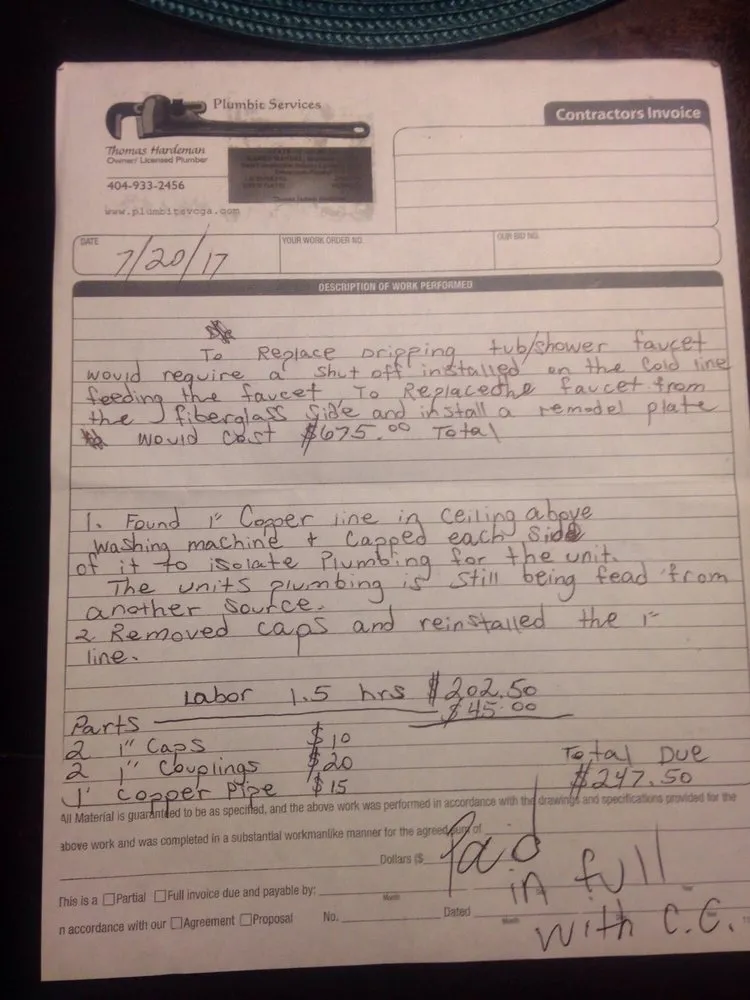 Plumbit Services
Contractors Invoice
Thomas Hardeman
Owner/ Licensed Plumber
404-933-2456
www.plumbitsvcga.com
DATE
7/20/17
YOUR WORK ORDER NO.
OUR BID NO.
DESCRIPTION OF WORK PERFORMED
To Replace Dripping tub/shower faucet
would require a shut off installed on the cold line
feeding the faucet. To Replace the faucet from
the fiberglass side and install a remodel plate
would cost $675.00 Total
1. Found 1" Copper line in ceiling above
washing machine + capped each side
of it to isolate Plumbing for the unit.
The units plumbing is still being fead from
another source.
2 Removed caps and reinstalled the 1"
line.
Labor 1.5 hrs $202.50
$45.00
Parts
2 1" Caps $10
2 1" Couplings $20
1' Copper Pipe $15
Total Due
$247.50
All Material is guaranteed to be as specified, and the above work was performed in accordance with the drawings and specifications provided for the
above work and was completed in a substantial workmanlike manner for the agreed sum of
Dollars ($
Paid
in full
with C.C.
This is a Partial Full invoice due and payable by:
Month
n accordance with our Agreement Proposal No. Dated
Month